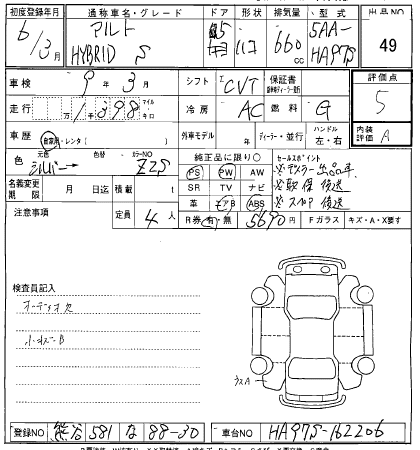 初度登録年月 通称車名・グレード ドア 形状 排気量 型式 出品NO
6/3月 アルト HYBRID S 5 ハコ 660cc 5AA-HA97S 49
車検 9年3月 シフト I CVT 保証書 評価点
走行 1万1千398 マイル キロ 冷房 AC 燃料 G 5
車歴 自家用・レンタ( ) 外車モデル 年 ディーラー・並行 ハンドル 左・右 内装評価 A
色 元色 シルバー 色替 カラーNO Z2S 純正品に限り○ セールスポイント
名義変更期限 月 日迄 積載 t PS PW AW ※ディーラー出品車
SR TV ナビ ※取保後送
注意事項 定員 4人 革 エアB ABS ※スペア後送
R券 有・無 5690円 Fガラス キズ・A・X要す
検査員記入
オーディオ欠
小キズB
ウスA
登録NO 熊谷 581 な 88-30 車台NO HA97S-162206